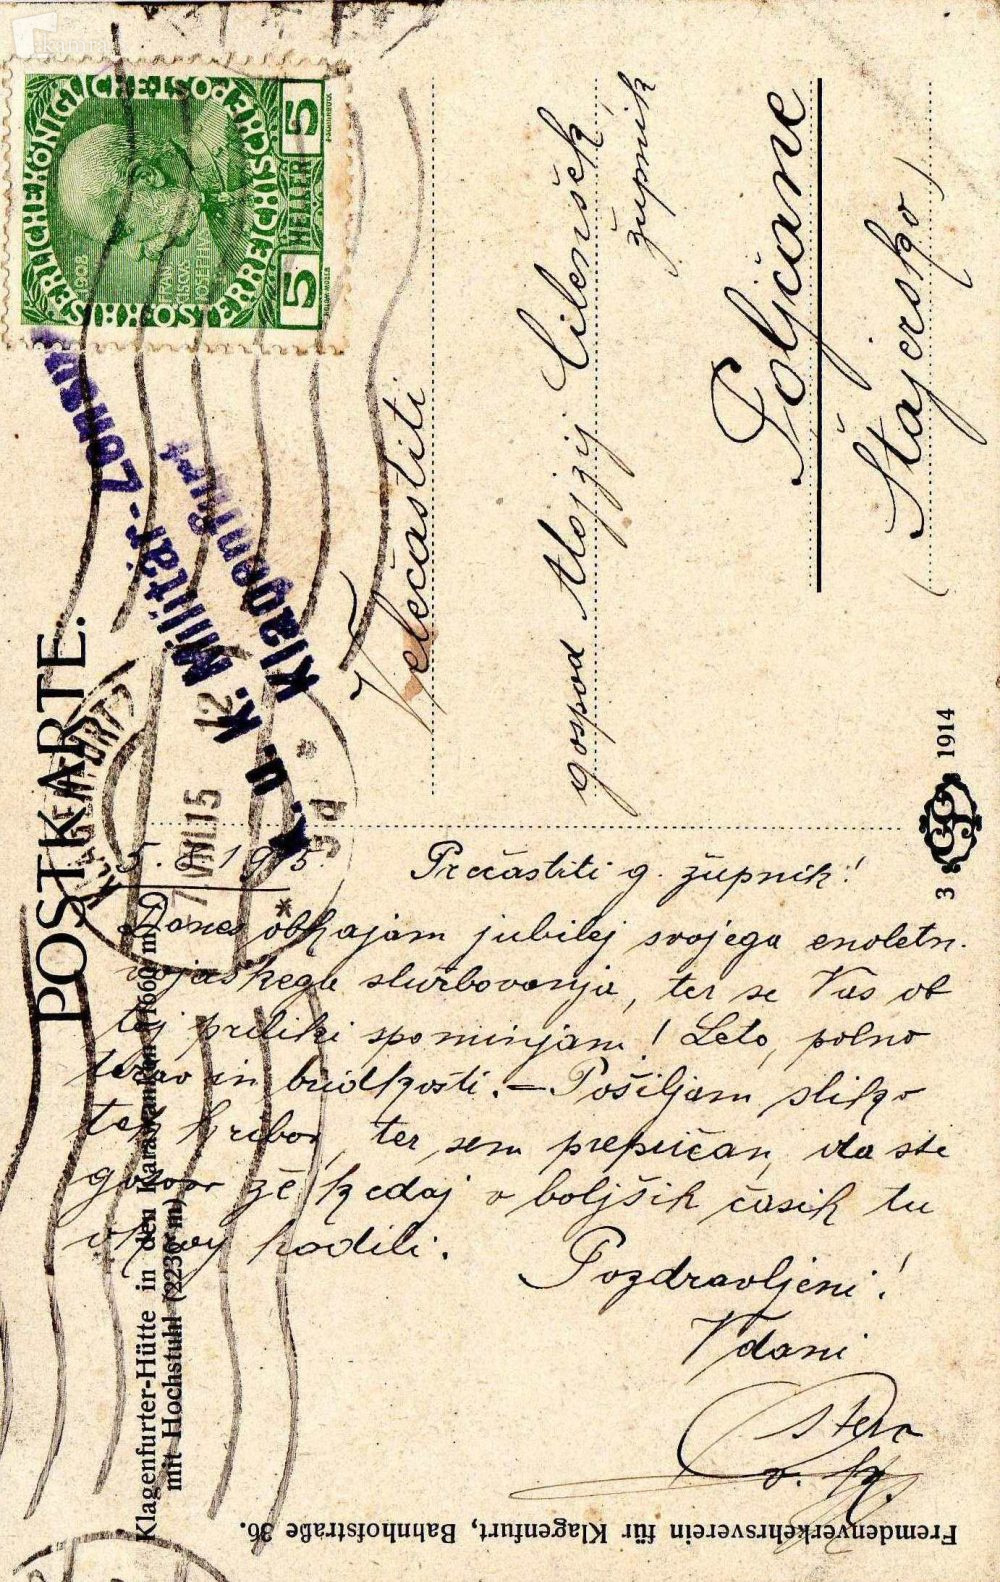 POSTKARTE.
Klagenfurter-Hütte in den Karawanken (1660 m)
mit Hochstuhl (2239 m)
Fremdenverkehrsverein für Klagenfurt, Bahnhofstraße 36.
3 1914
KAIS. KÖNIGLICHE ÖSTERREICHISCHE POST
1908
FRANCISCVS IOSEPH I
5 HELLER 5
K. u. K. Militär-Zensur
Klagenfurt
KLAGENFURT
7.VIII.15 12
9d
Velečastiti
gospod Alojzij Cilenšek,
župnik
Poljčane
(Štajersko)
5. 8. 1915. Prečastiti g. župnik!
Danes obhajam jubilej svojega enoletn.
vojaškega službovanja, ter se Vas ob
tej priliki spominjam! Leto, polno
težav in bridkosti. – Pošiljam sliko
teh hribov, ter sem prepričan, da ste
gotovo že kedaj v boljših časih tu
okrog hodili.
Pozdravljeni!
Vdani